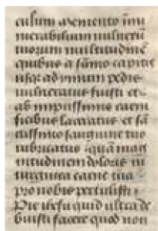 culum memento innu
merabilium vulneru
tuorum multitudine
quibus a sumo capitis
usq ad ymum pedis
vulneratus fuisti et
ab impiissimis carni
ficibus laceratus et sa
cratissimo sanguine tuo
rubricatus quam mag
nitudinem doloris in
virginea carne tua
pro nobis pertulisti
Pie iesu quid ultra de
buisti facere quod non